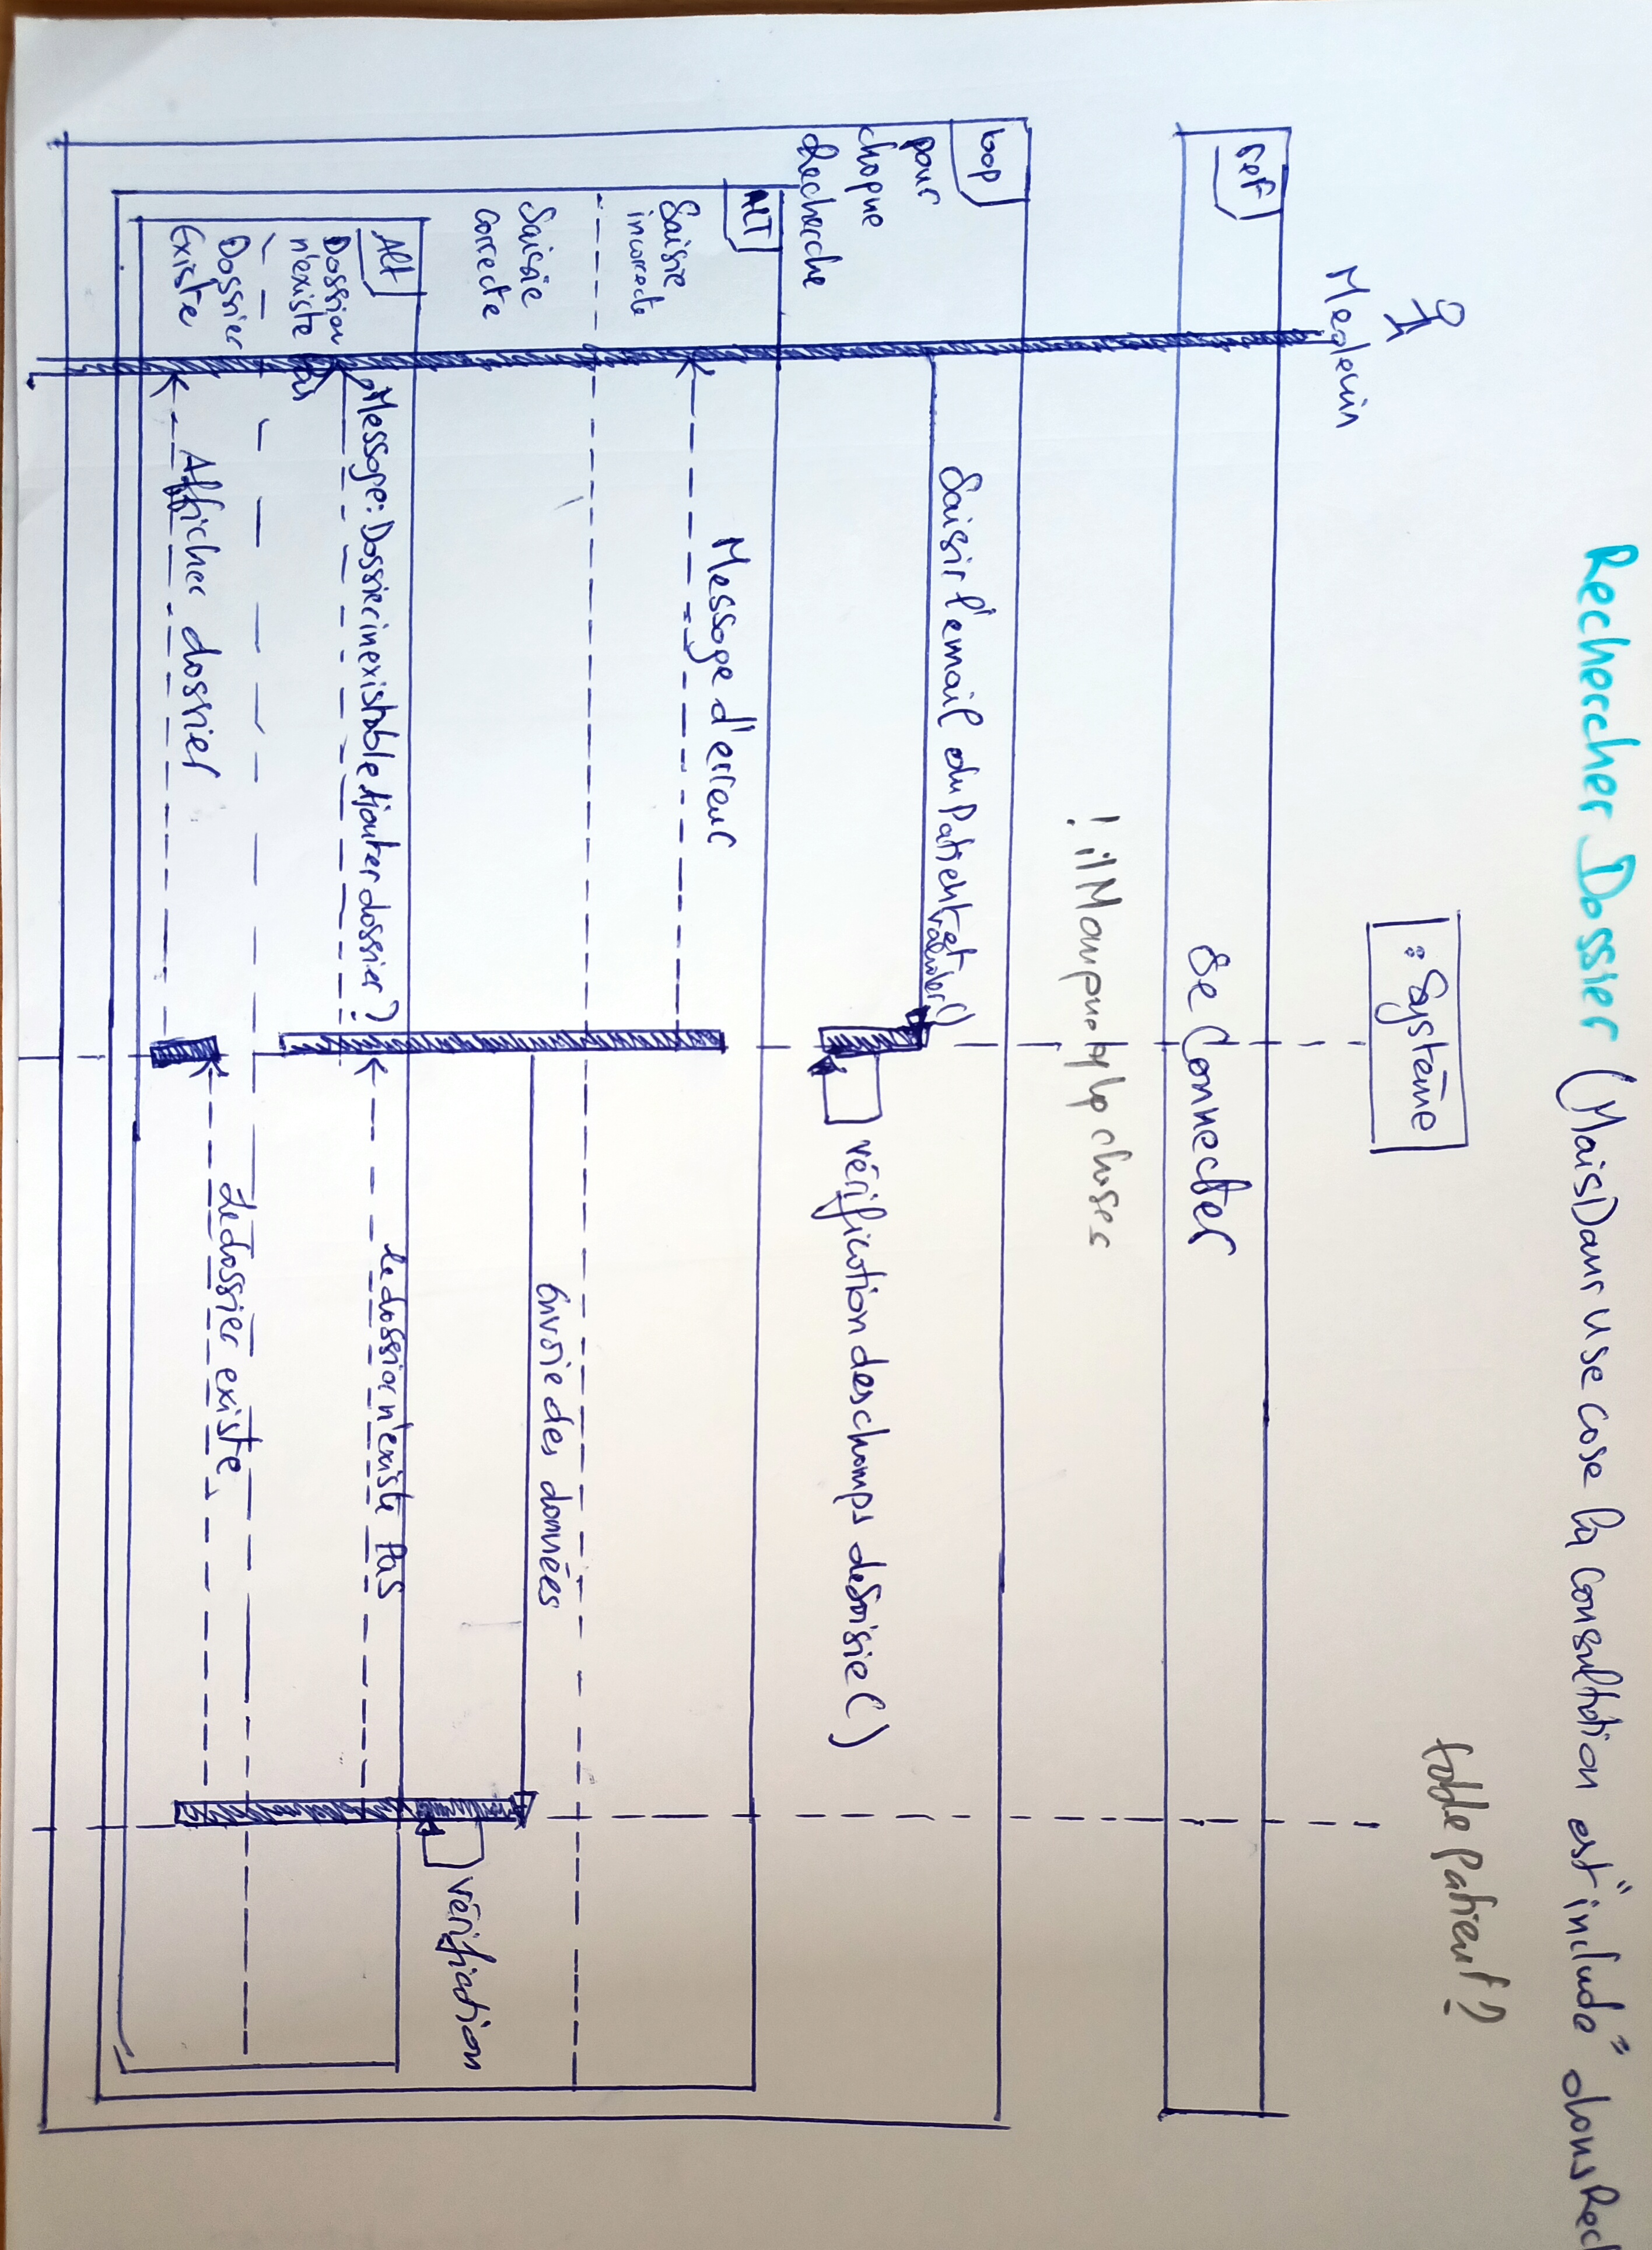 Rechercher Dossier (Mais Dans Use case la consultation est "include" dans Rec
table patient?
: Système
Medecin
ref
Se Connecter
! il Manque qlq choses
loop
pour
chaque
Recherche
Saisir l'email du Patient et
valider()
vérification des champs de saisie ( )
ALT
Message d'erreur
Saisie
incorrecte
Saisie
correcte
Envoie des données
vérification
Alt
Message: Dossier inexistable Ajouter dossier ?
le dossier n'existe Pas
Dossier
n'existe Pas
Dossier
Existe
Le dossier existe
Afficher dossier